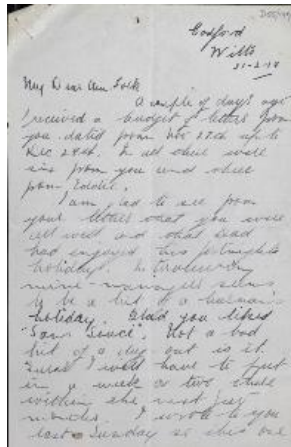 Codford
Wilts
21-2-18
My Dear Ain Folk
A couple of days ago
I received a budget of letters from
you dated from Nov 28th up to
Dec 29th. In all there were
six from you and three
from Eddie.
I am glad to see from
your letters that you were
all well and that Dad
had enjoyed his fortnights
holiday.
mine-managers seems
to be a bit of a busman's
holiday. Glad you liked
"Sans Souci". Not a bad
bit of a day out is it.
I will have to put
in a week or two there
within the next few
months. I wrote to you
last Sunday so this one